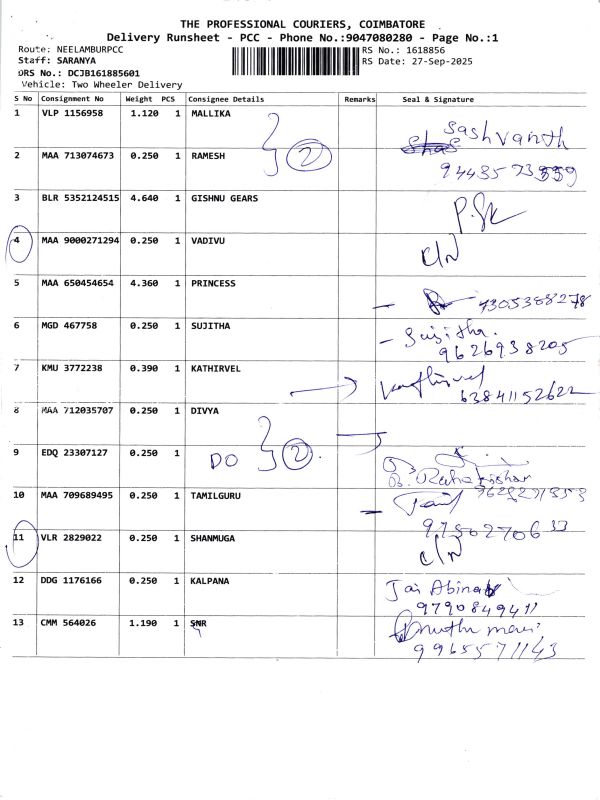 THE PROFESSIONAL COURIERS, COIMBATORE
Delivery Runsheet - PCC - Phone No.:9047080280 - Page No.:1
Route: NEELAMBURPCC RS No.: 1618856
Staff: SARANYA RS Date: 27-Sep-2025
DRS No.: DCJB161885601
Vehicle: Two Wheeler Delivery
S No Consignment No Weight PCS Consignee Details Remarks Seal & Signature
1 VLP 1156958 1.120 1 MALLIKA
Sashvanth
2 MAA 713074673 0.250 1 RAMESH 2
3 BLR 5352124515 4.640 1 GISHNU GEARS
4 MAA 9000271294 0.250 1 VADIVU C/N
5 MAA 650454654 4.360 1 PRINCESS
7305388278
6 MGD 467758 0.250 1 SUJITHA Sujitha.
9626938205
7 KMU 3772238 0.390 1 KATHIRVEL Kathirvel
63841152622
8 MAA 712035707 0.250 1 DIVYA
9 EDQ 23307127 0.250 1 DO 2
10 MAA 709689495 0.250 1 TAMILGURU
9750270633
11 VLR 2829022 0.250 1 SHANMUGA C/N
12 DDG 1176166 0.250 1 KALPANA Jai Abinav
9790849411
13 CMM 564026 1.190 1 SNR
9965571143